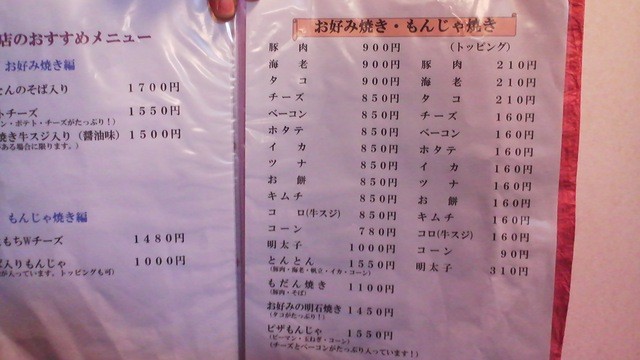 店のおすすめメニュー
お好み焼き編
とんのそば入り 1700円
トチーズ 1550円
ン・ポテト・チーズがたっぷり！）
焼き牛スジ入り（醤油味） 1500円
がある場合に限ります。）
もんじゃ焼き編
もちWチーズ 1480円
入りもんじゃ 1000円
が入っています。トッピングも可）
お好み焼き・もんじゃ焼き
豚肉 900円
海老 900円
タコ 900円
チーズ 850円
ベーコン 850円
ホタテ 850円
イカ 850円
ツナ 850円
お餅 850円
キムチ 850円
コロ(牛スジ) 850円
コーン 780円
明太子 1000円
とんとん 1550円
（豚肉・海老・帆立・イカ・コーン）
もだん焼き 1100円
（豚肉・そば）
お好みの明石焼き 1450円
（タコがたっぷり！）
ピザもんじゃ 1550円
（ピーマン・玉ねぎ・コーン）
（チーズとベーコンがたっぷり入っています！）
(トッピング)
豚肉 210円
海老 210円
タコ 210円
チーズ 160円
ベーコン 160円
ホタテ 160円
イカ 160円
ツナ 160円
お餅 160円
キムチ 160円
コロ(牛スジ) 160円
コーン 90円
明太子 310円